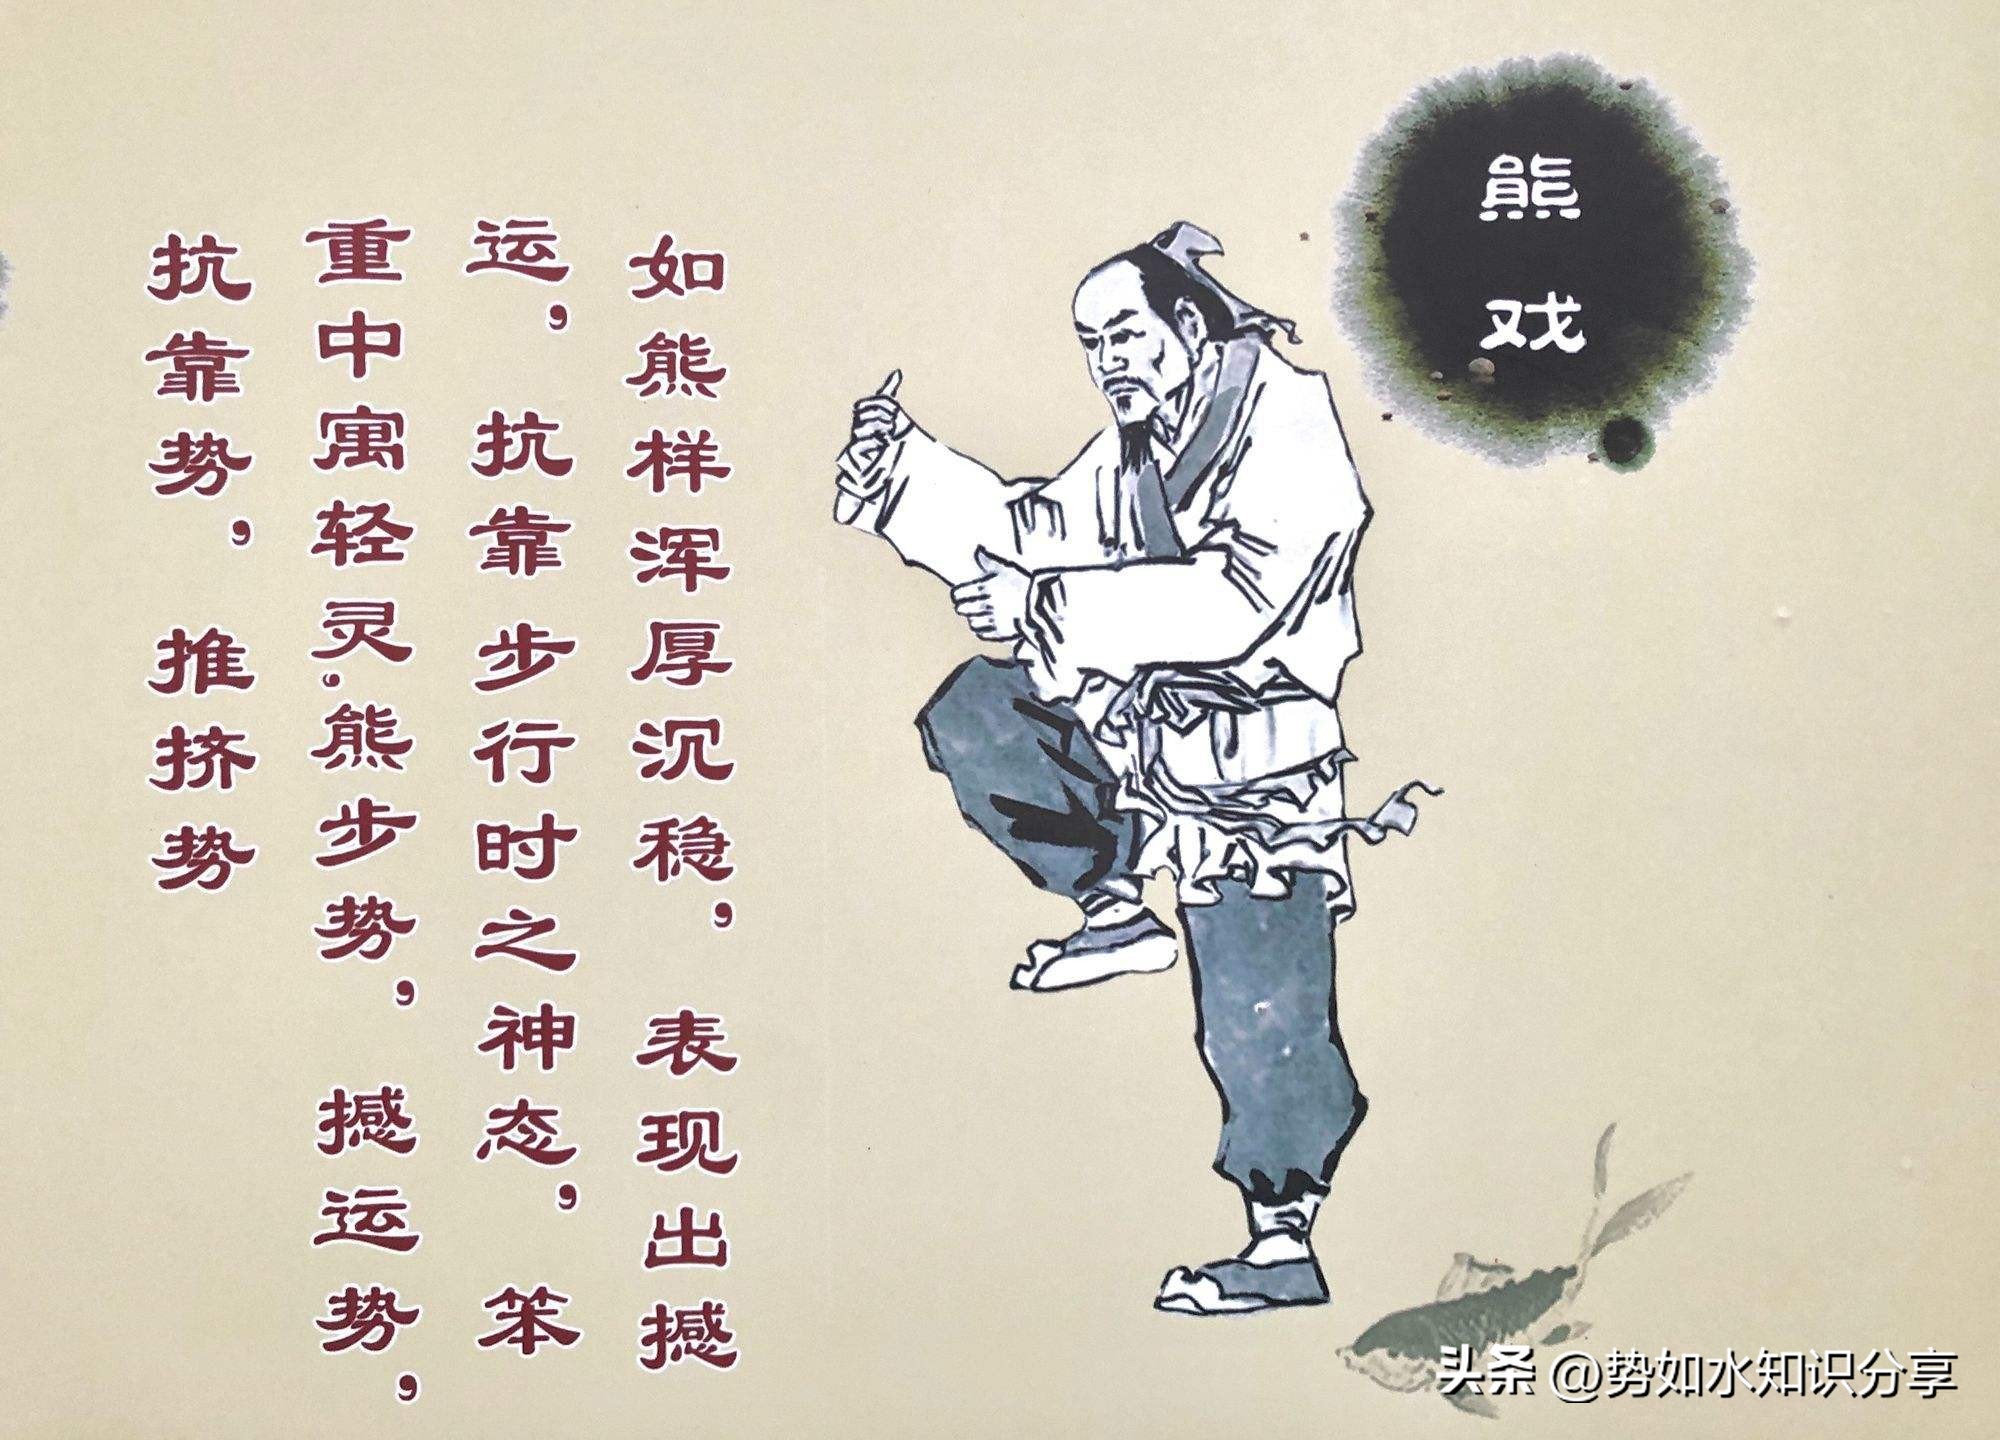 熊戏
如熊样浑厚沉稳，表现出撼
运，抗靠步行时之神态，笨
重中寓轻灵.熊步势，撼运势，
抗靠势，推挤势
头条 @势如水知识分享